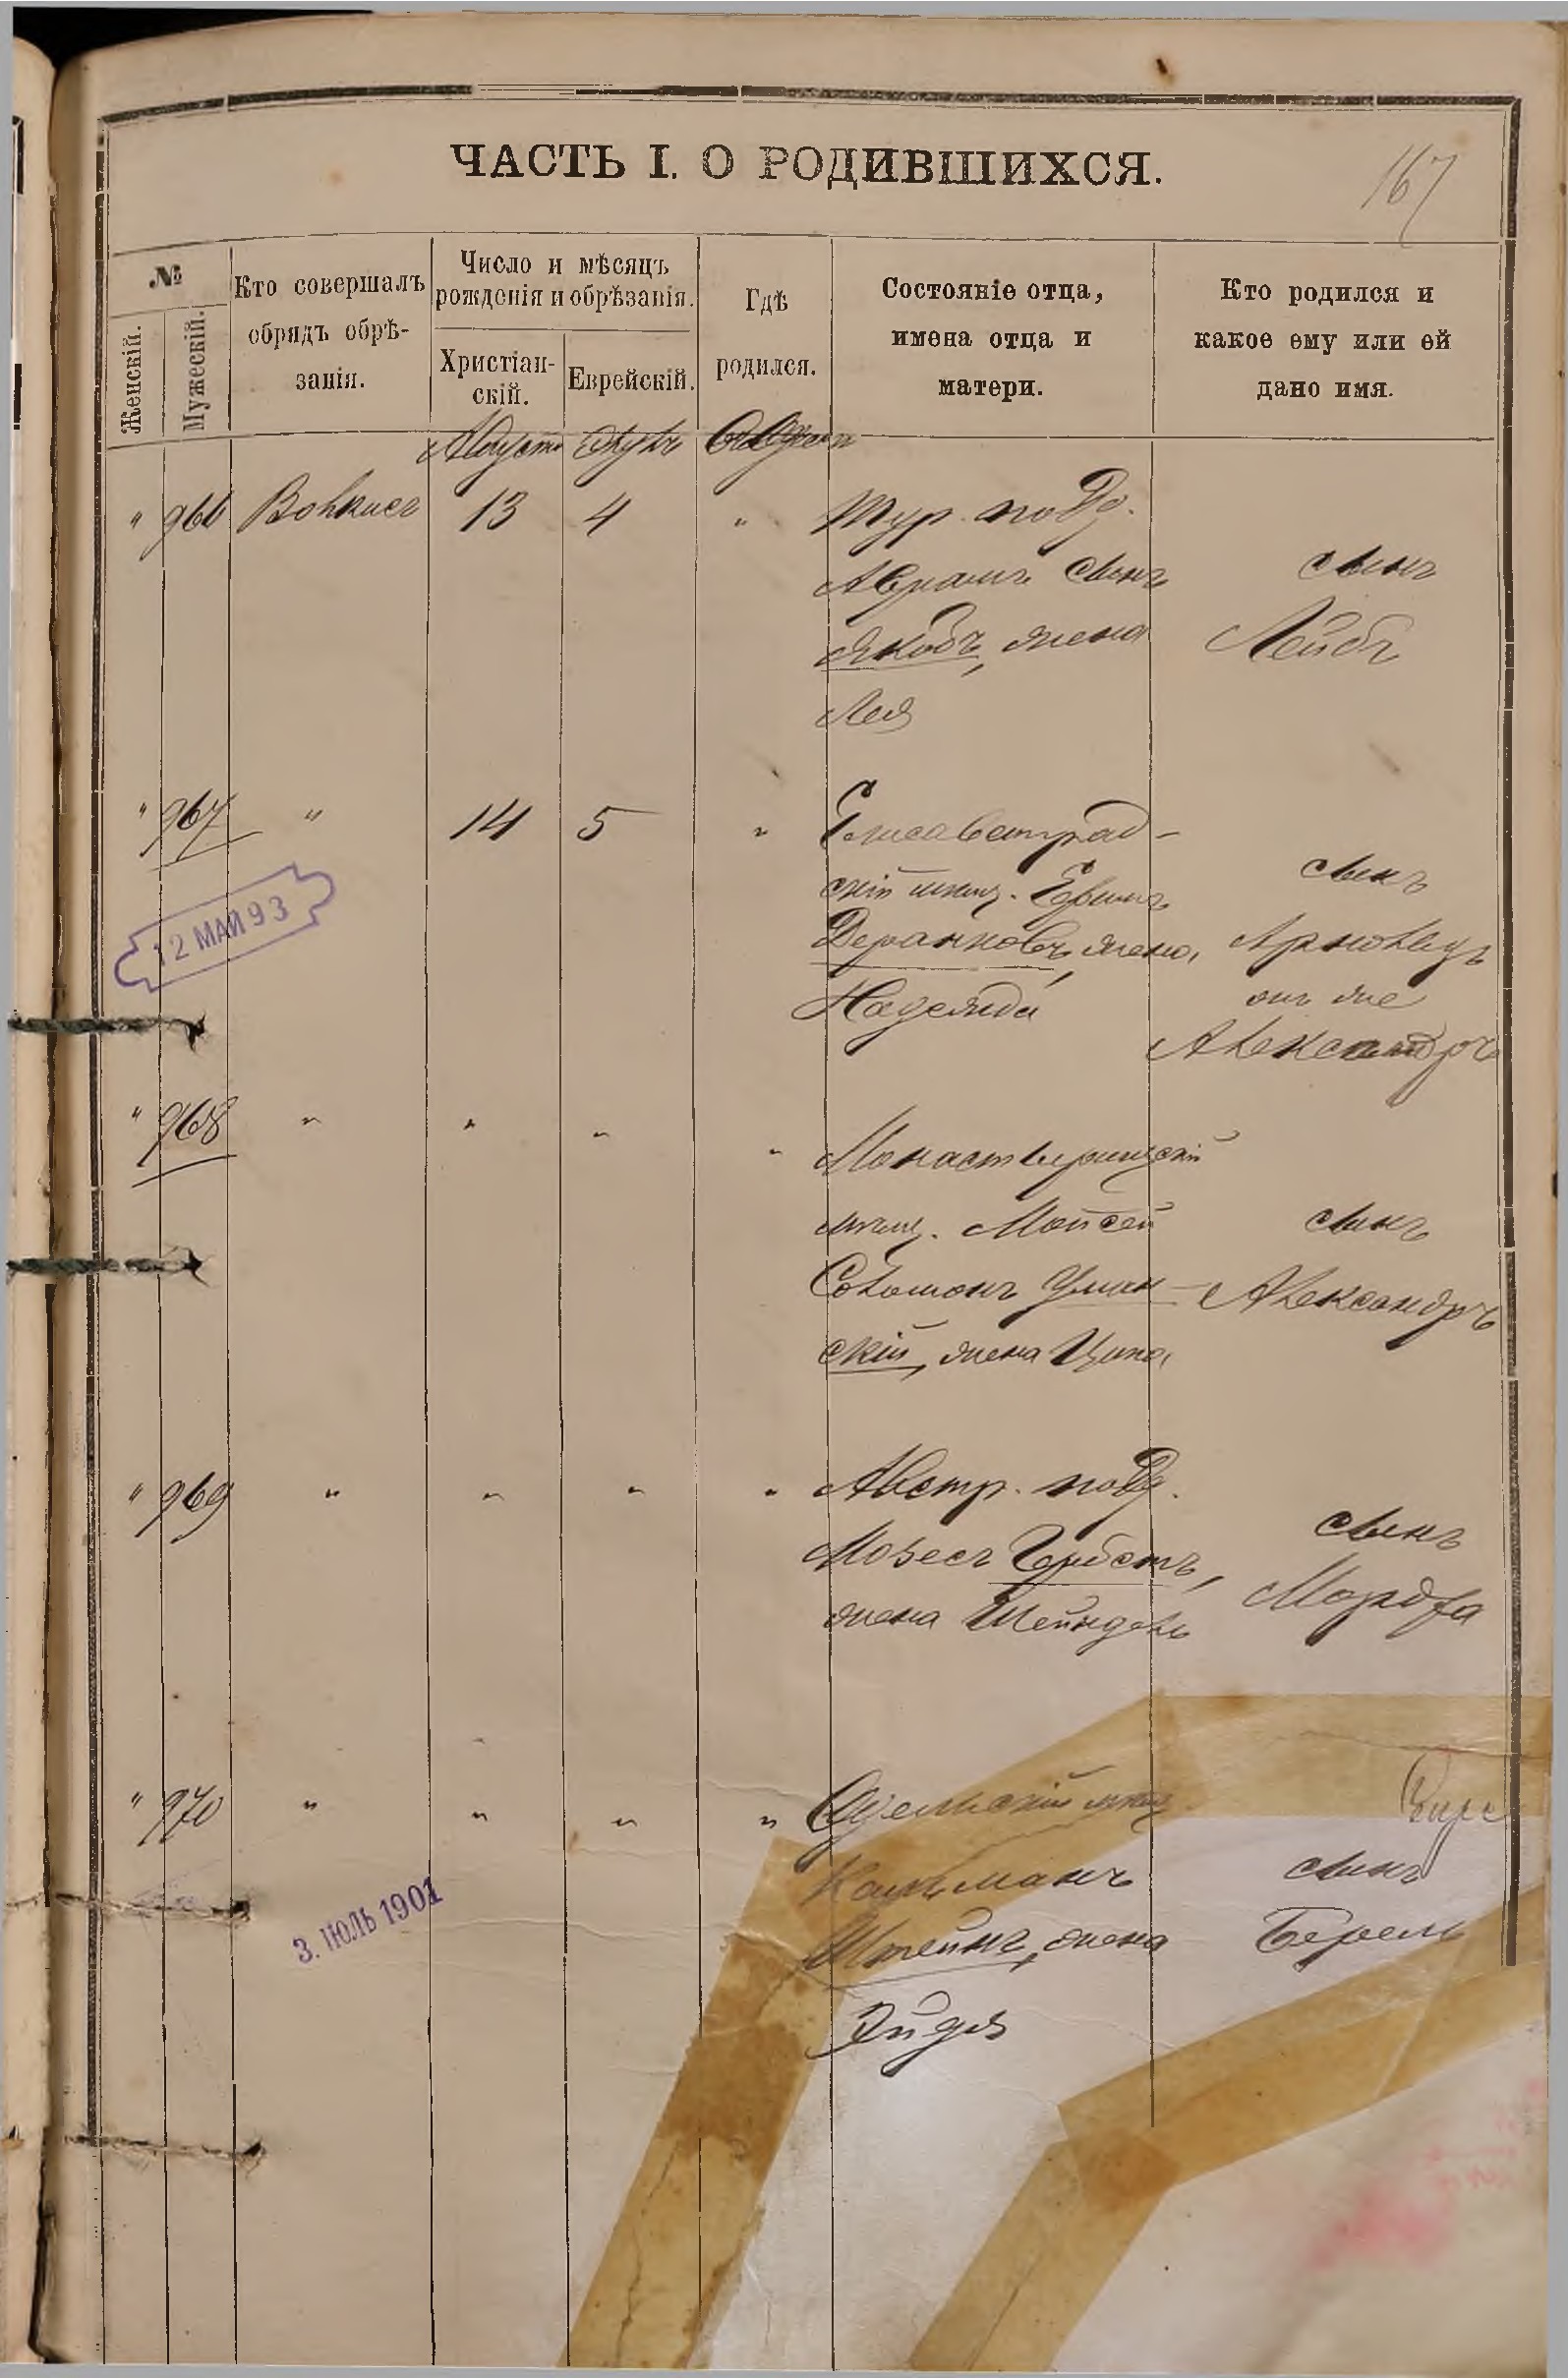 ЧАСТЬ I. О РОДИВШИХСЯ.
167
№
Женскій.
Мужескій.
Кто совершалъ
обрядъ обрѣ-
занія.
Число и мѣсяцъ
рожденія и обрѣзанія.
Христіан-
скій.
Еврейскій.
Гдѣ
родился.
Состояніе отца,
имена отца и
матери.
Кто родился и
какое ему или ей
дано имя.
Августъ Элулъ Одесса
" 966 Волкисъ 13 4 " Тур. подд.
Авраамъ сынъ
Якобъ, жена
Лея
сынъ
Лейбъ
" 967 " 14 5 " Елисаветград-
скій мѣщ. Ефимъ
жена
Надежда
сынъ
Арнольдъ
онъ же
Александръ
12 МАЙ 93
" 968 " " " " Монастырищскій
мѣщ. Мойсей
Соломонъ Уман-
скій, жена Ципа
сынъ
Александръ
" 969 " " " " Австр. подд.
Мозесъ Гербстъ,
жена Шейндель
сынъ
Мордха
" 970 " " " " мѣщ.
Кальманъ
Штейнъ, жена
Эйдя
сынъ
Берель
3. ІЮЛЬ 1901